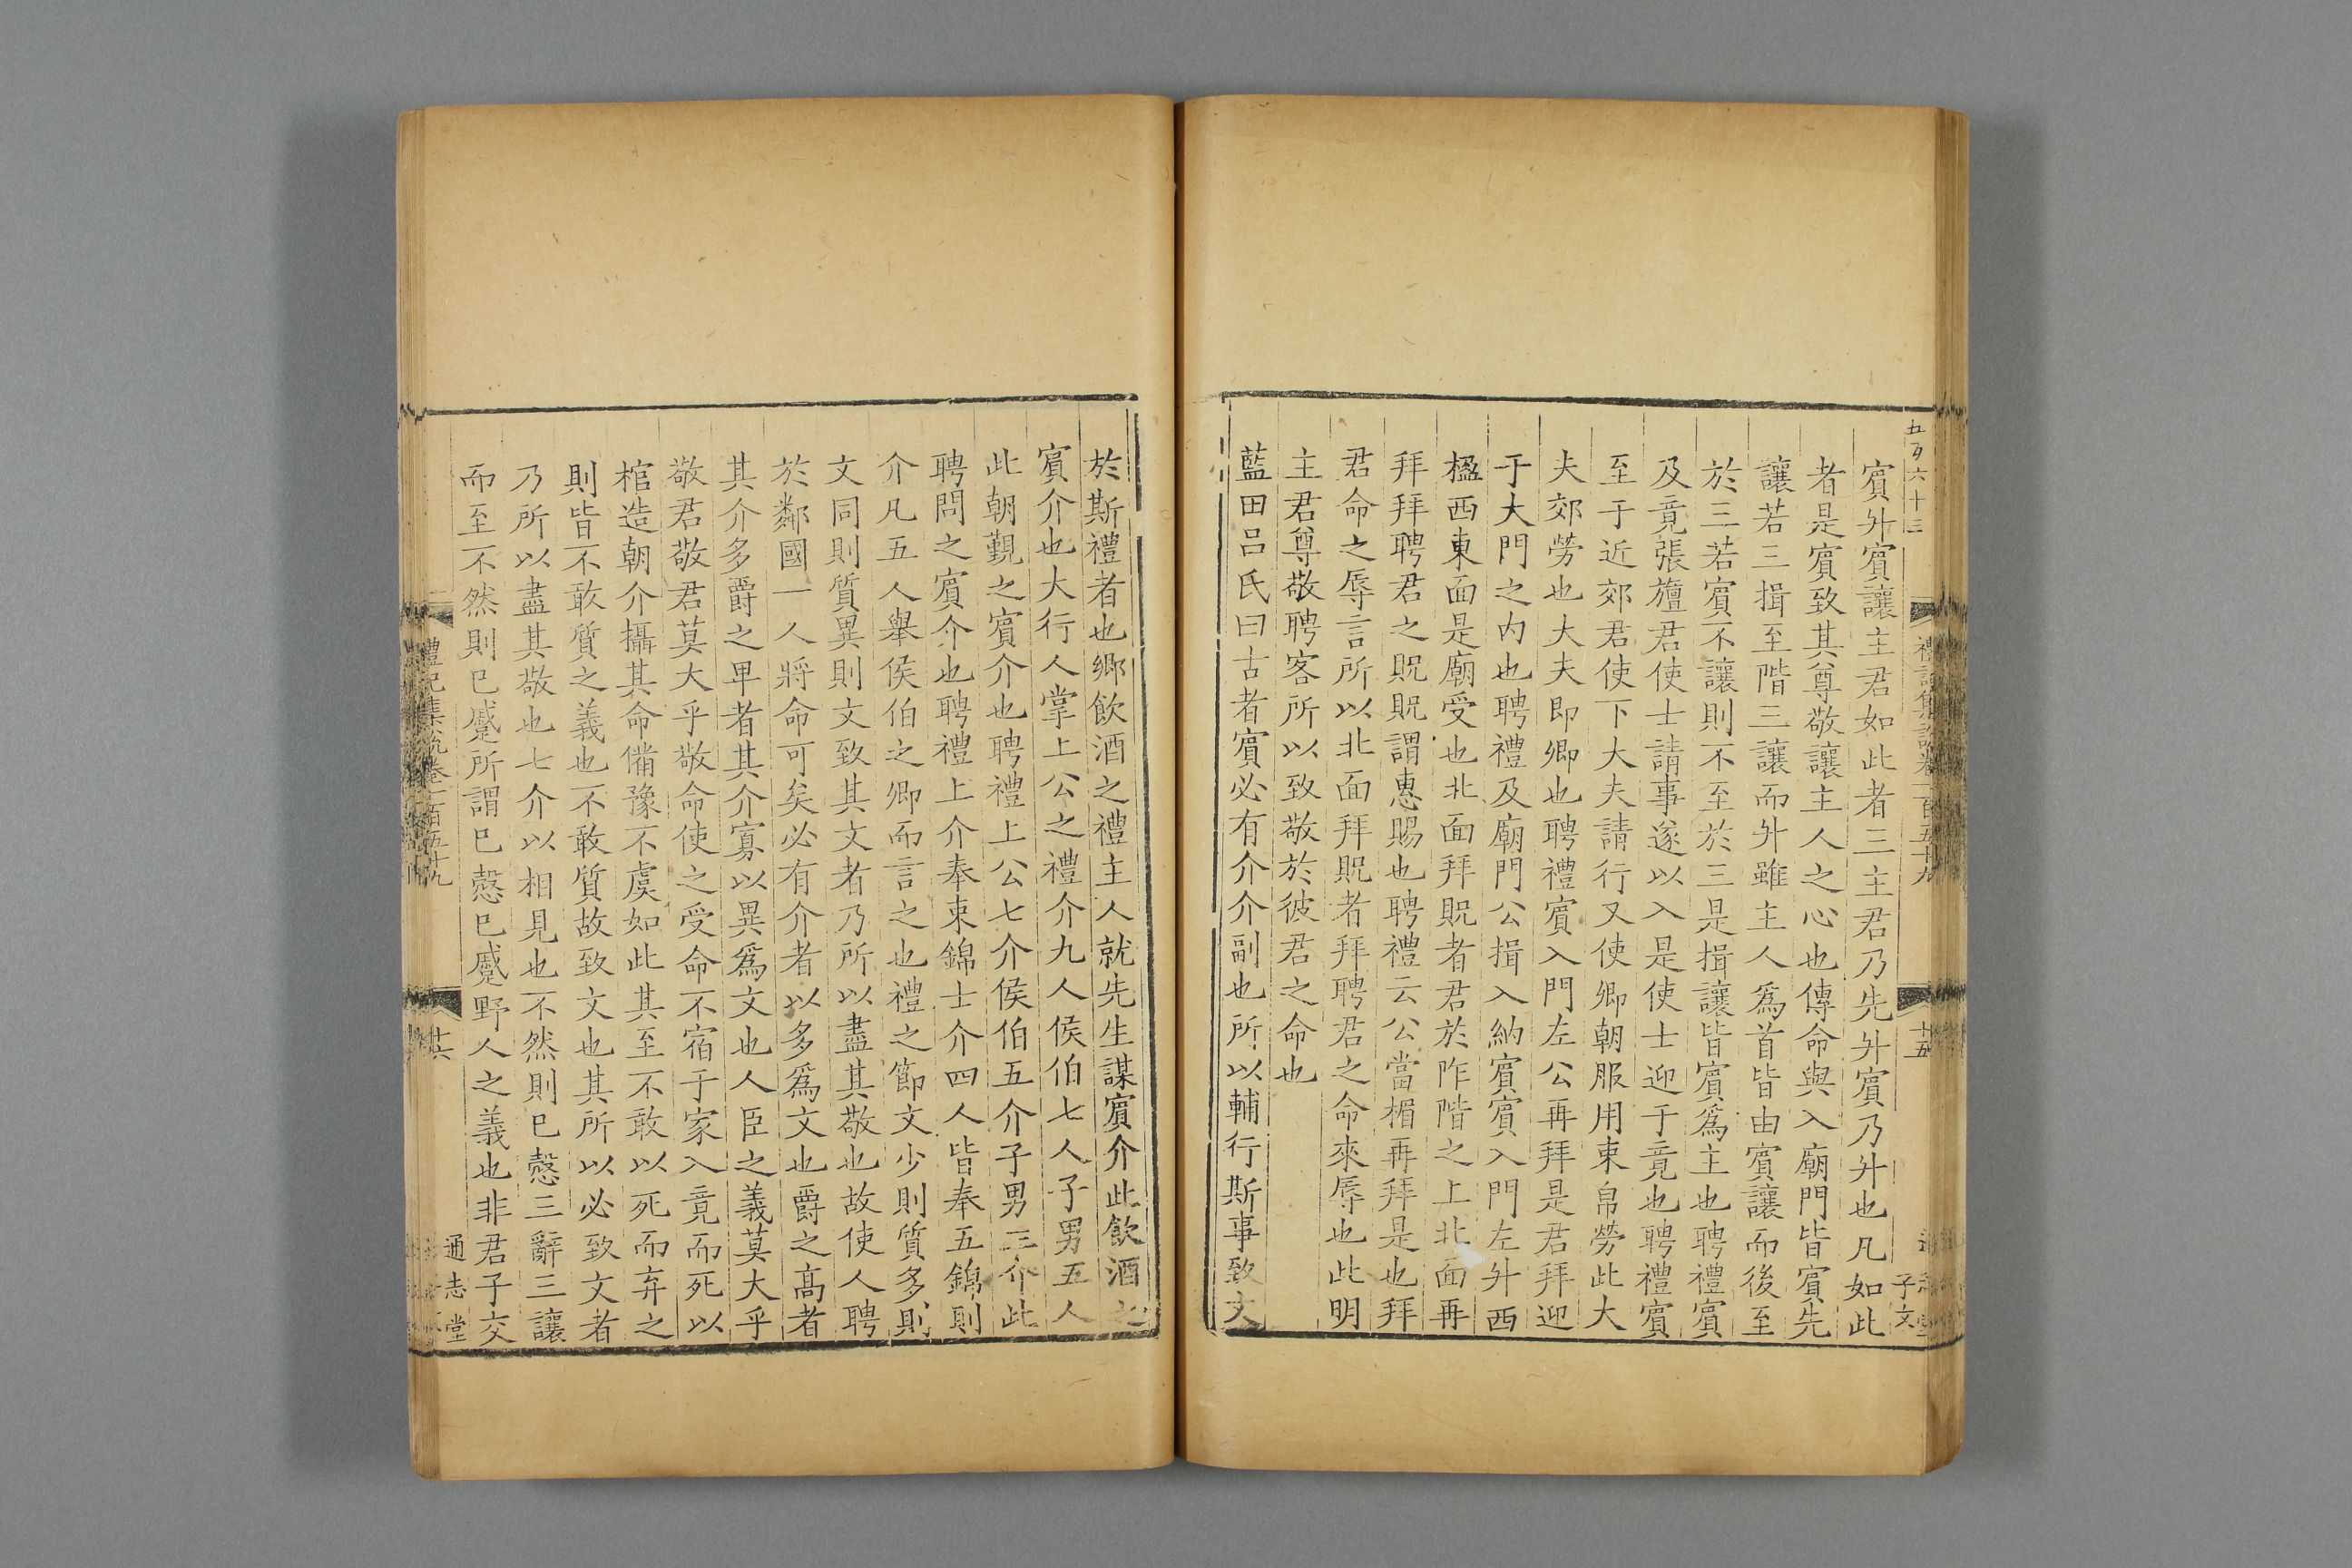 五百六十三
賔升賔讓主君如此者三主君乃先升賔乃升也凡如此
者是賔致其尊敬讓主人之心也傳命與入廟門皆賔先
讓若三揖至階三讓而升雖主人爲首皆由賔讓而後至
於三若賔不讓則不至於三是揖讓皆賔爲主也聘禮賔
及竟張旜君使士請事遂以入是使士迎于竟也聘禮賔
至于近郊君使下大夫請行又使卿朝服用束帛勞此大
夫郊勞也大夫即卿也聘禮賔入門左公再拜是君拜迎
于大門之内也聘禮及廟門公揖入納賔賔入門左升西
楹西東面是廟受也北面拜貺者君於阼階之上北面再
拜拜聘君之貺貺謂惠賜也聘禮云公當楣再拜是也拜
君命之辱言所以北面拜貺者拜聘君之命來辱也此明
主君尊敬聘客所以致敬於彼君之命也
藍田吕氏曰古者賔必有介介副也所以輔行斯事致文
禮記集說卷一百五十九
十五
子文
於斯禮者也鄉飲酒之禮主人就先生謀賔介此飲酒之
賔介也大行人掌上公之禮介九人侯伯七人子男五人
此朝覲之賔介也聘禮上公七介侯伯五介子男三介此
聘問之賔介也聘禮上介奉束錦士介四人皆奉五錦則
介凡五人舉侯伯之卿而言之也禮之節文少則質多則
文同則質異則文致其文者乃所以盡其敬也故使人聘
於鄰國一人將命可矣必有介者以多爲文也爵之髙者
其介多爵之卑者其介寡以異爲文也人臣之義莫大乎
敬君敬君莫大乎敬命使之受命不宿于家入竟而死以
棺造朝介攝其命備豫不虞如此其至不敢以死而弃之
則皆不敢質之義也不敢質故致文也其所以必致文者
乃所以盡其敬也七介以相見也不然則已慤三辭三讓
而至不然則已蹙所謂已慤已蹙野人之義也非君子交
禮記集說卷一百五十九
十六
通志堂